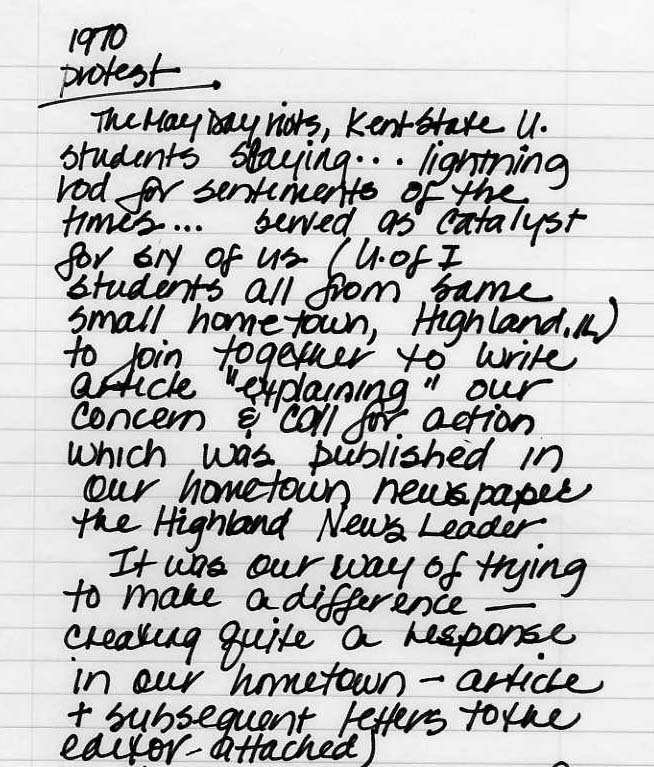 1970
protest
The May Day riots, Kent State U.
students slaying... lightning
rod for sentiments of the
times... served as catalyst
for six of us (U. of I
students all from same
small hometown, Highland, IL)
to join together to write
article "explaining" our
concern & call for action
which was published in
our hometown newspaper
the Highland News Leader
It was our way of trying
to make a difference —
creating quite a response
in our hometown - article
+ subsequent letters to the
editor - attached)